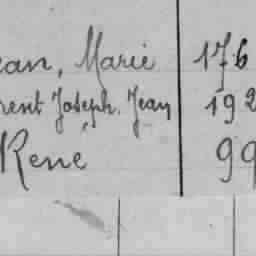 ean, Marie 176
rent Joseph. Jean 192
René 99